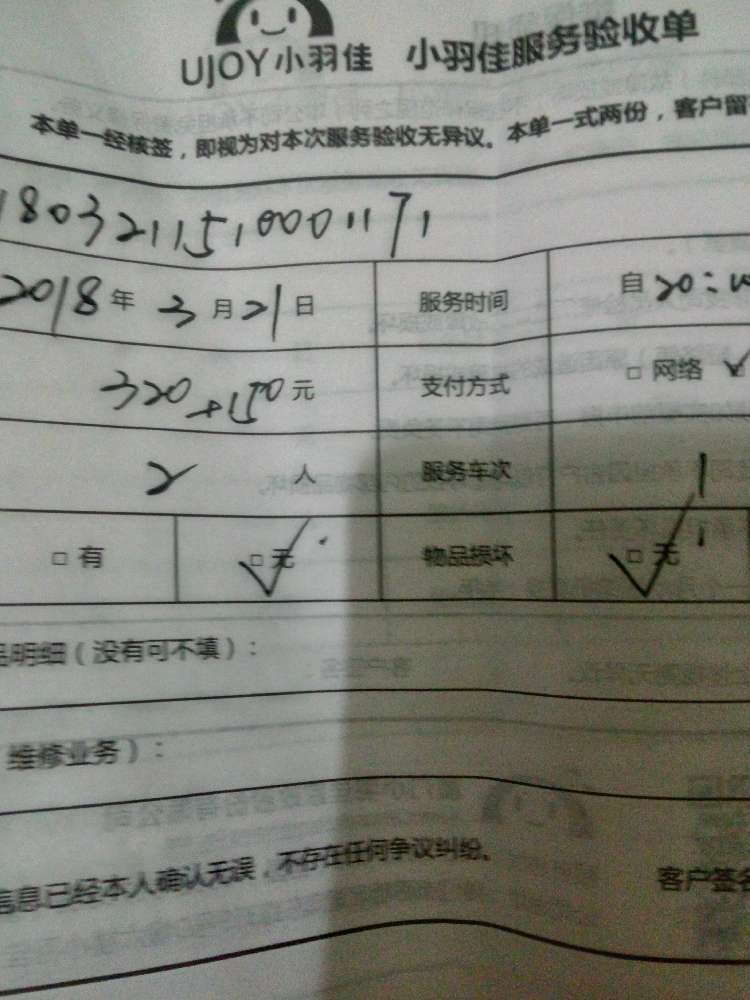 UJOY小羽佳 小羽佳服务验收单
本单一经核签，即视为对本次服务验收无异议。本单一式两份，客户留
1803211510001171
2018年3月21日 服务时间 自20:
320+150元 支付方式 □ 网络
2人 服务车次 1
□ 有 □ 无 物品损坏 □ 无
品明细（没有可不填）：
维修业务）：
信息已经本人确认无误，不存在任何争议纠纷。
客户签名